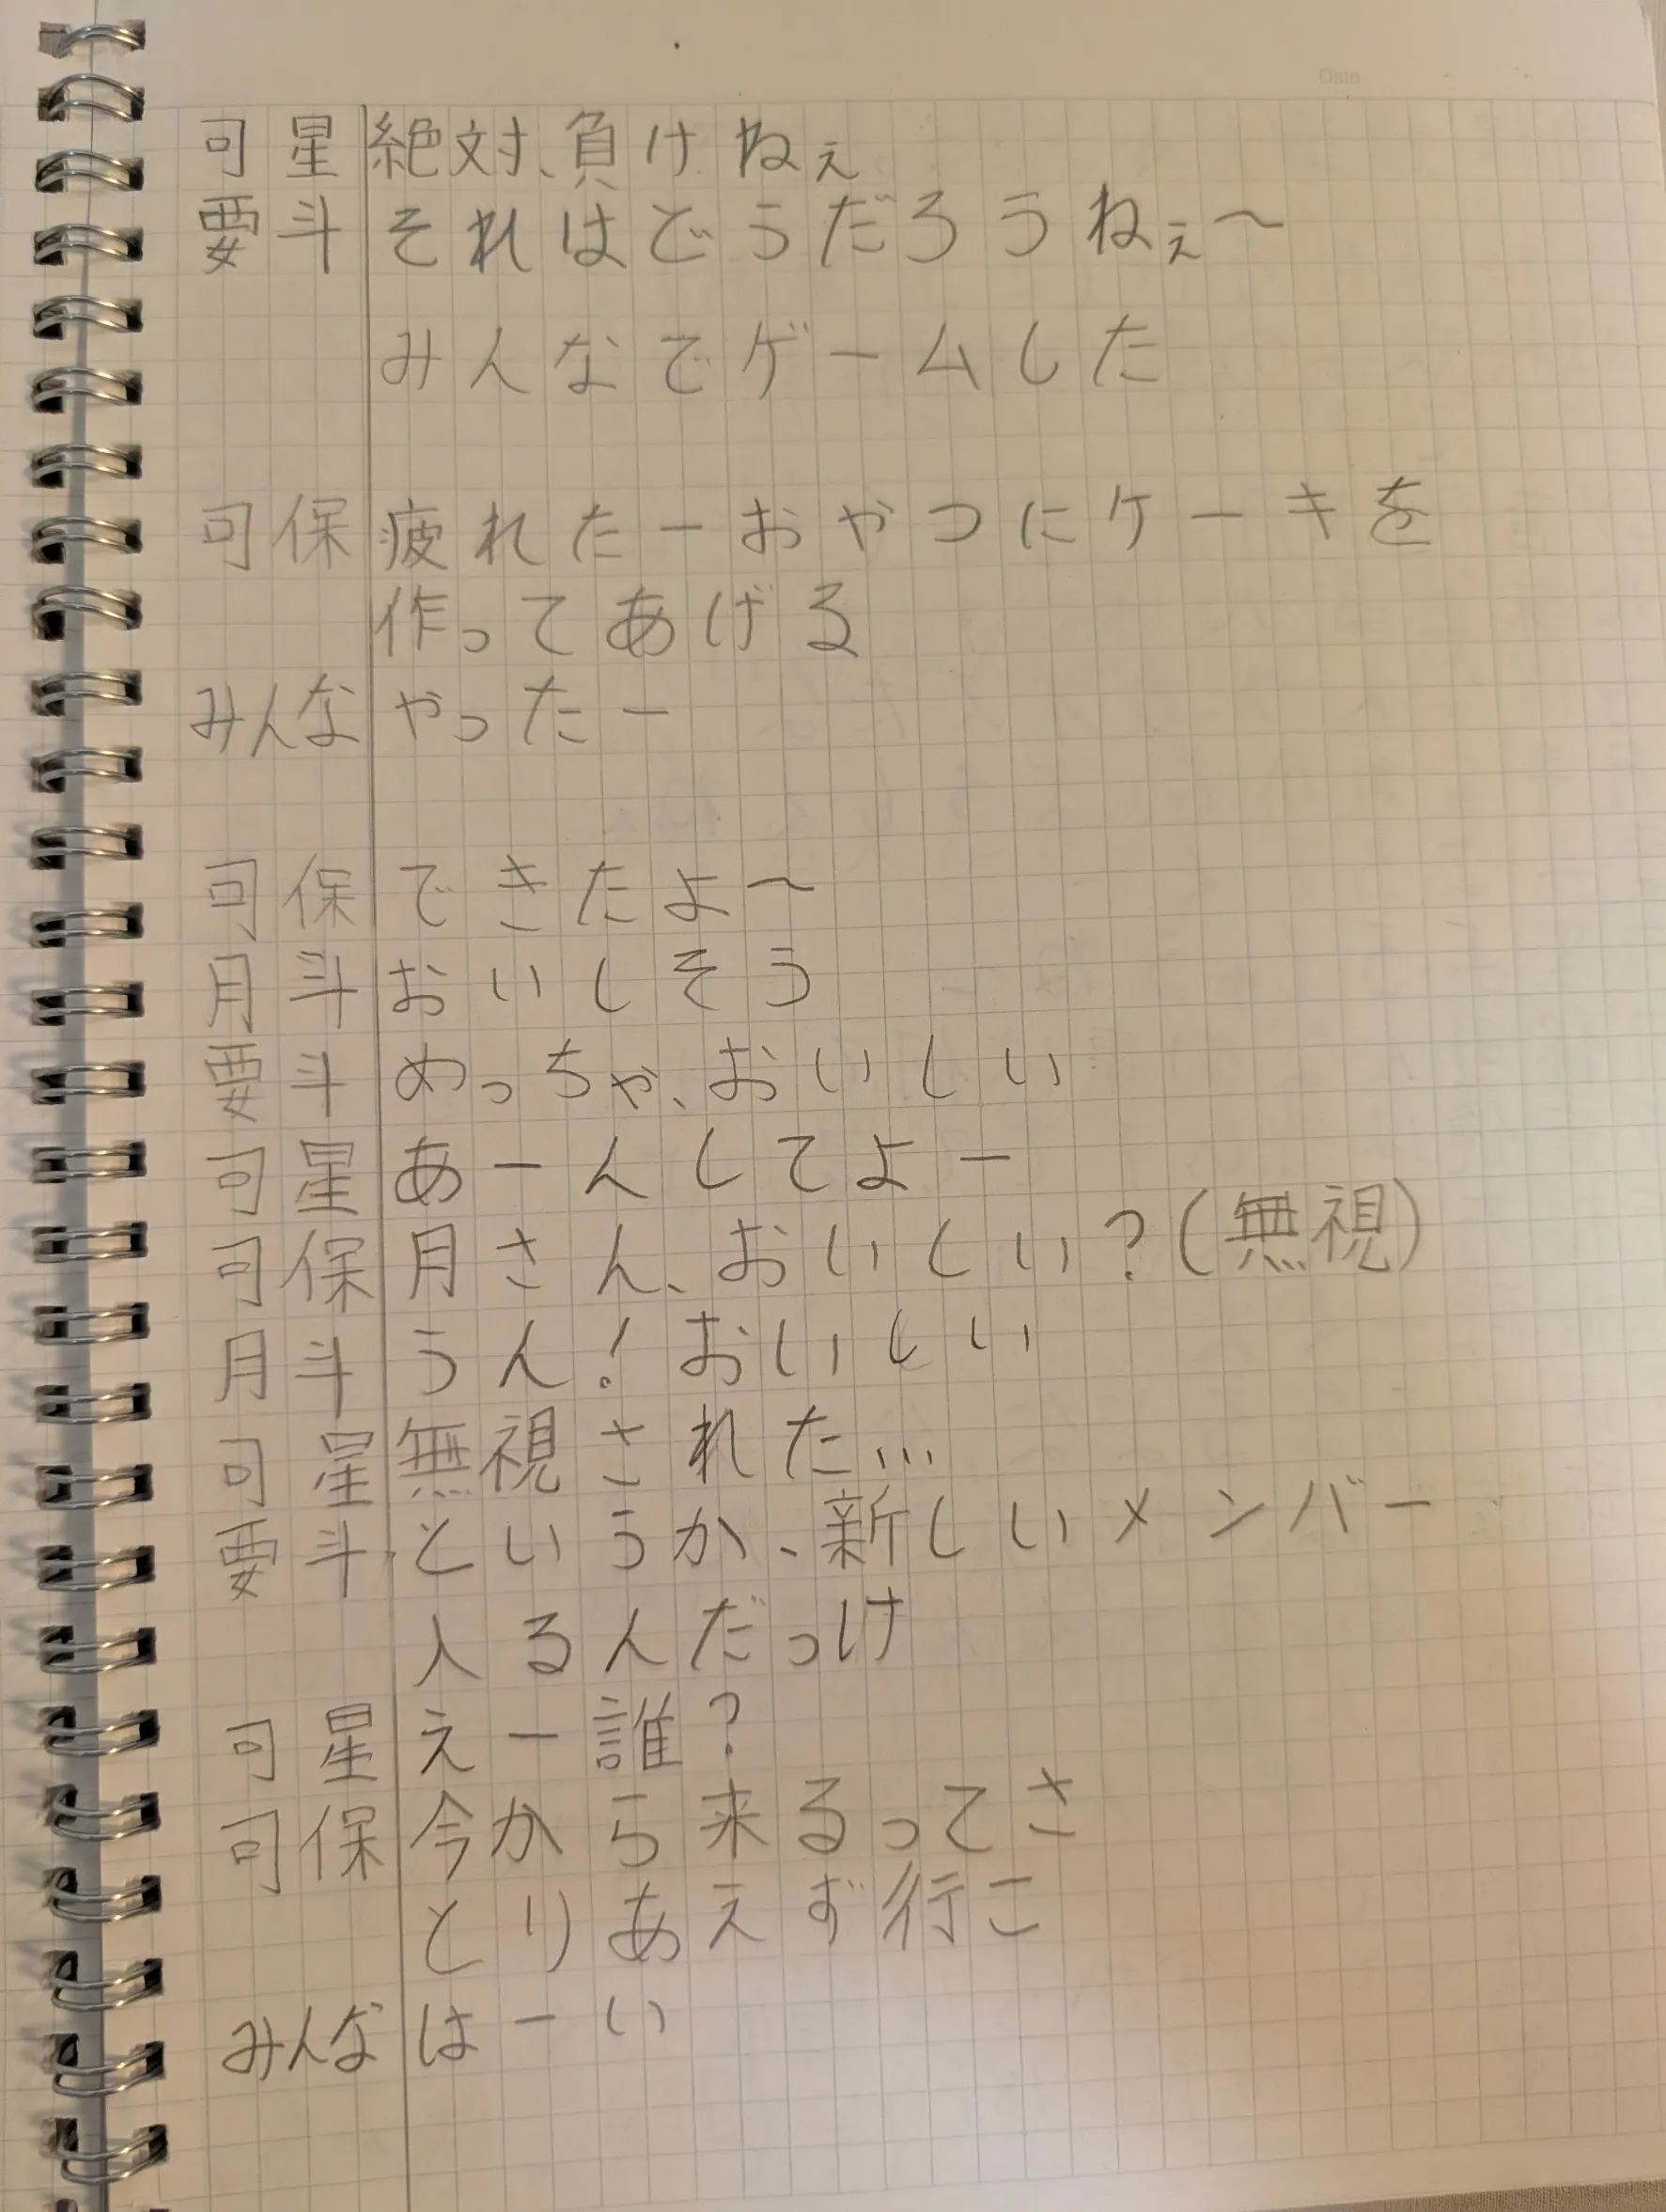 Date
可星 絶対、負けねぇ
要斗 それはどうだろうねぇ〜
みんなでゲームした
可保 疲れたーおやつにケーキを
作ってあげる
みんな やったー
可保 できたよ〜
月斗 おいしそう
要斗 めっちゃ、おいしい
可星 あーんしてよー
可保 月さん、おいしい?(無視)
月斗 うん!おいしい
可星 無視された...
要斗 というか、新しいメンバー
入るんだっけ
可星 えー誰?
可保 今から来るってさ
とりあえず行こ
みんな はーい